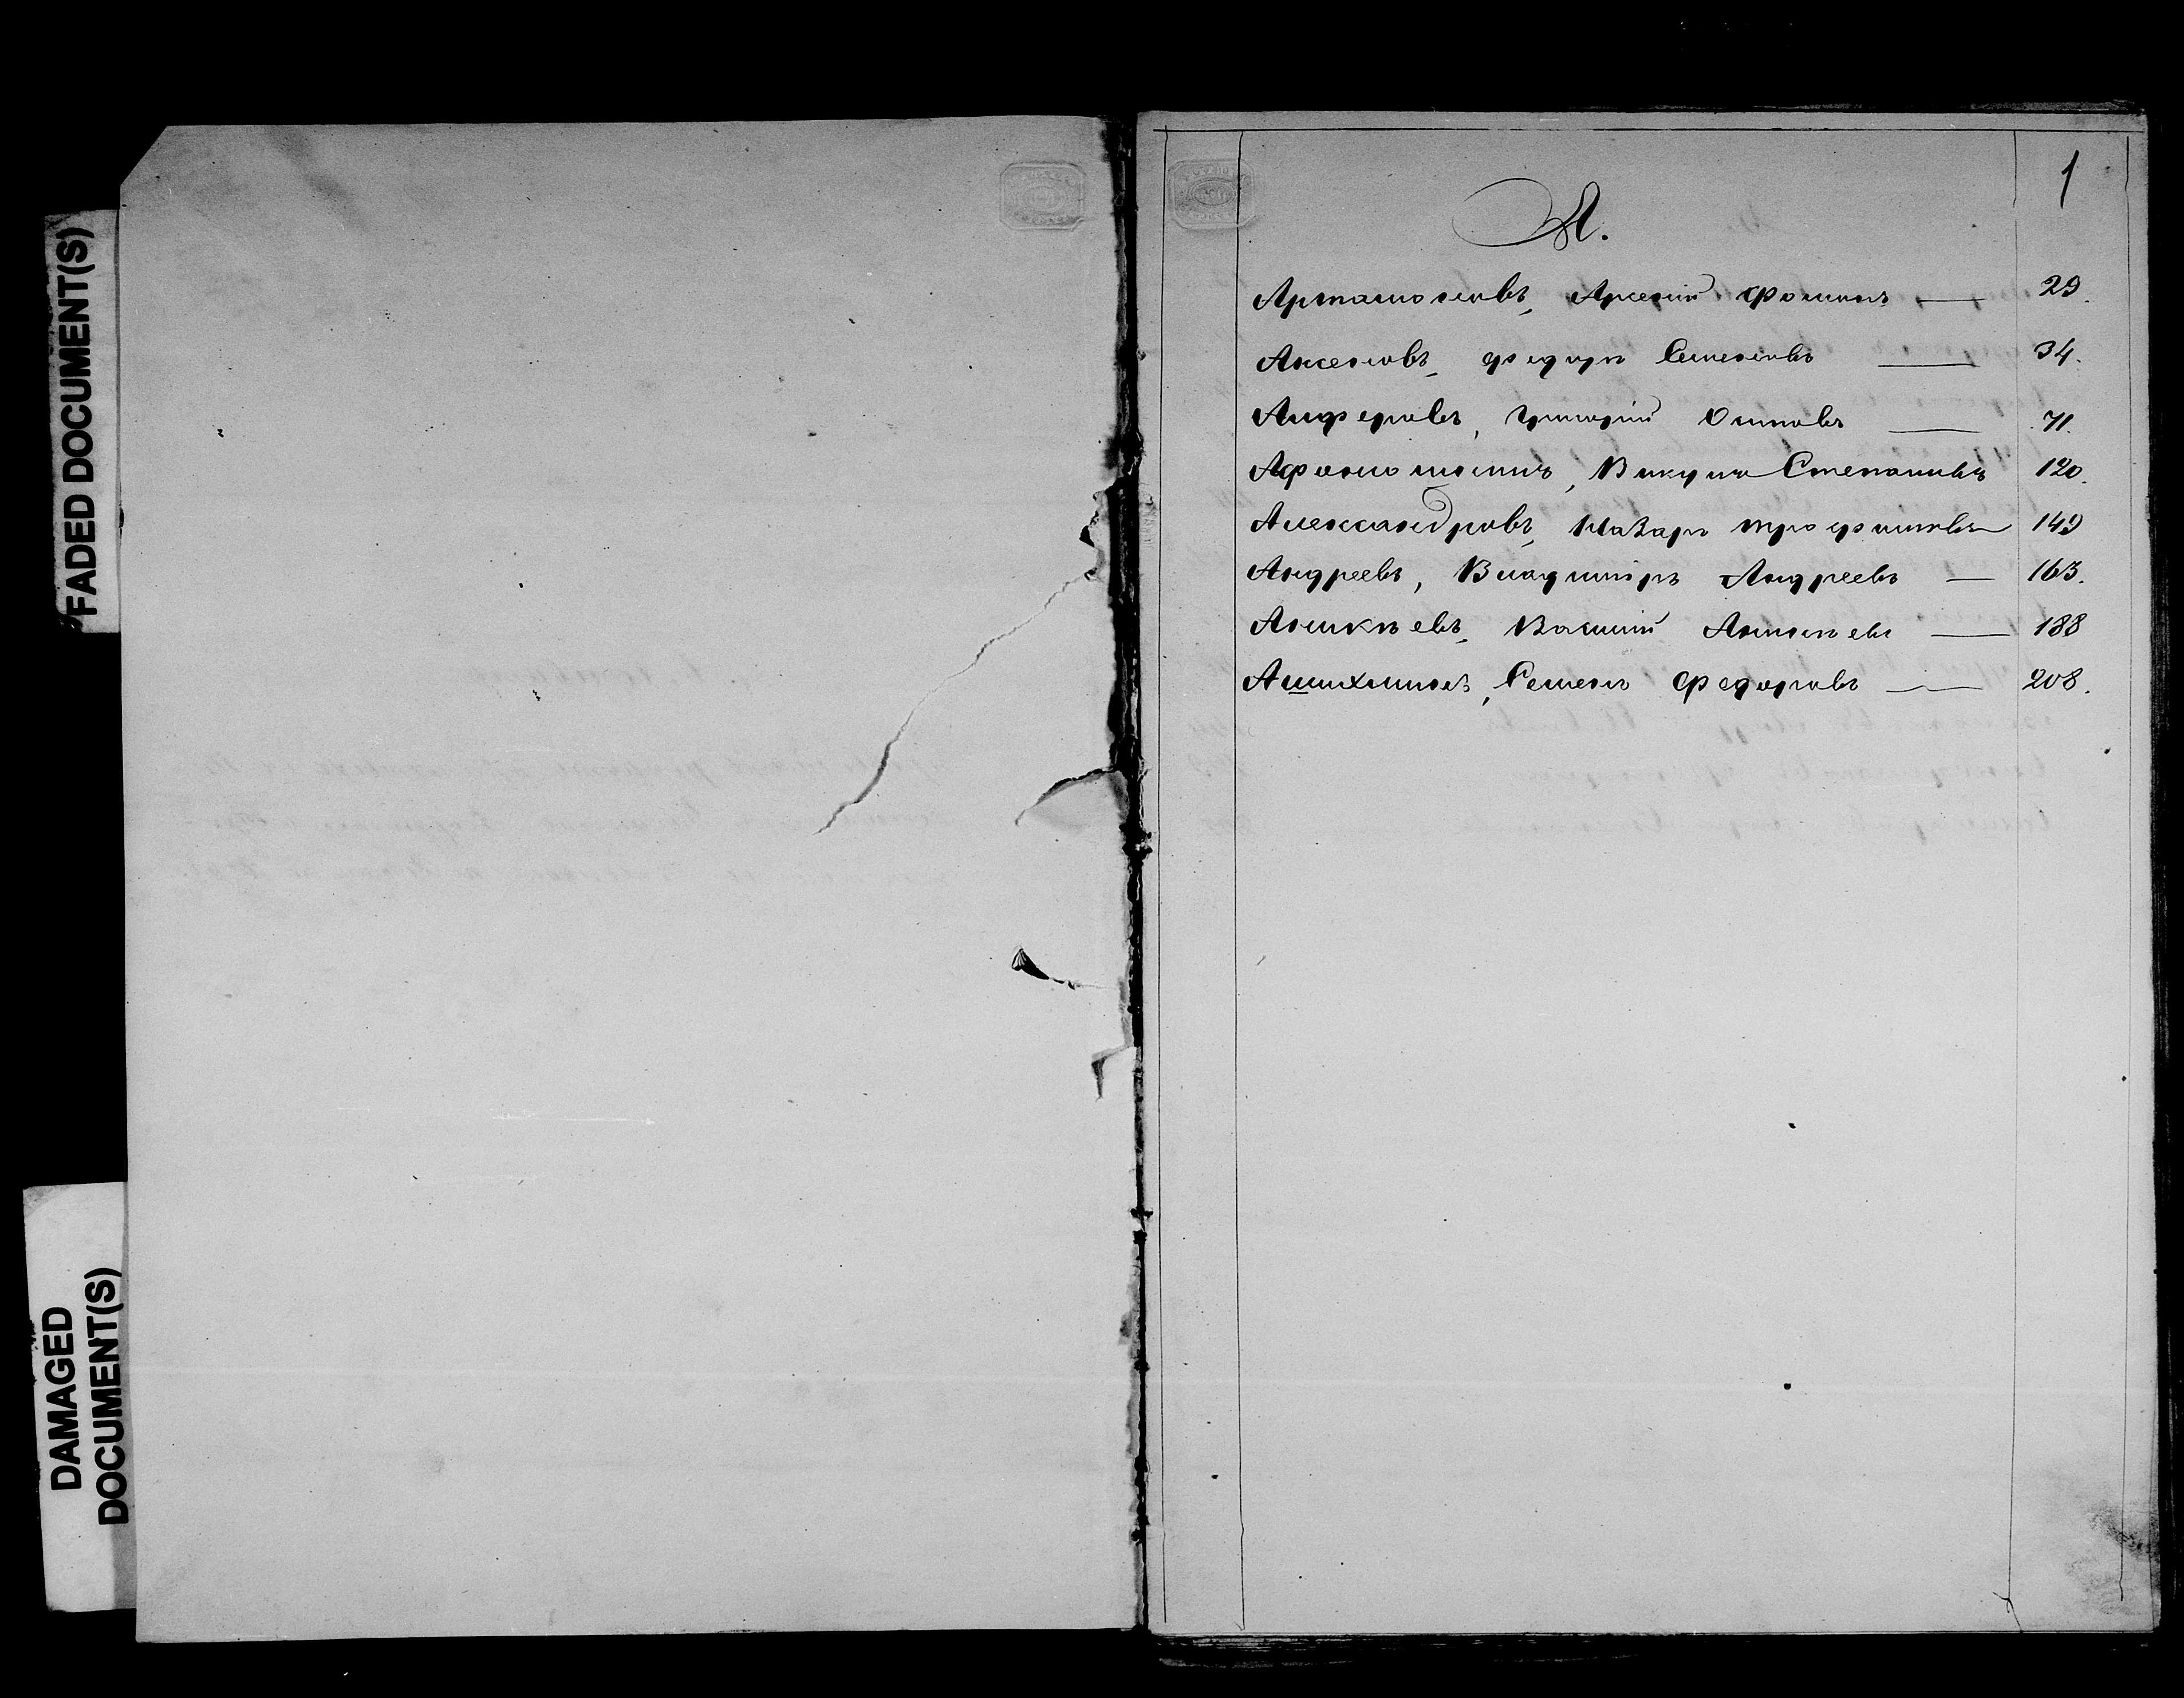 FADED DOCUMENT(S)
DAMAGED
DOCUMENT(S)
1
А.
Артамоновъ, Арсений Фоминъ — 29.
Аксеновъ, Федоръ Семеновъ — 34.
Алферовъ, Григорій Осиповъ — 71.
Афонюшкинъ, Викулъ Степановъ 120.
Александровъ, Назаръ Трофимовъ 149
Андреевъ, Владиміръ Андреевъ — 163.
Василий — 188
Ашихминъ, Семенъ Федоровъ — 208.